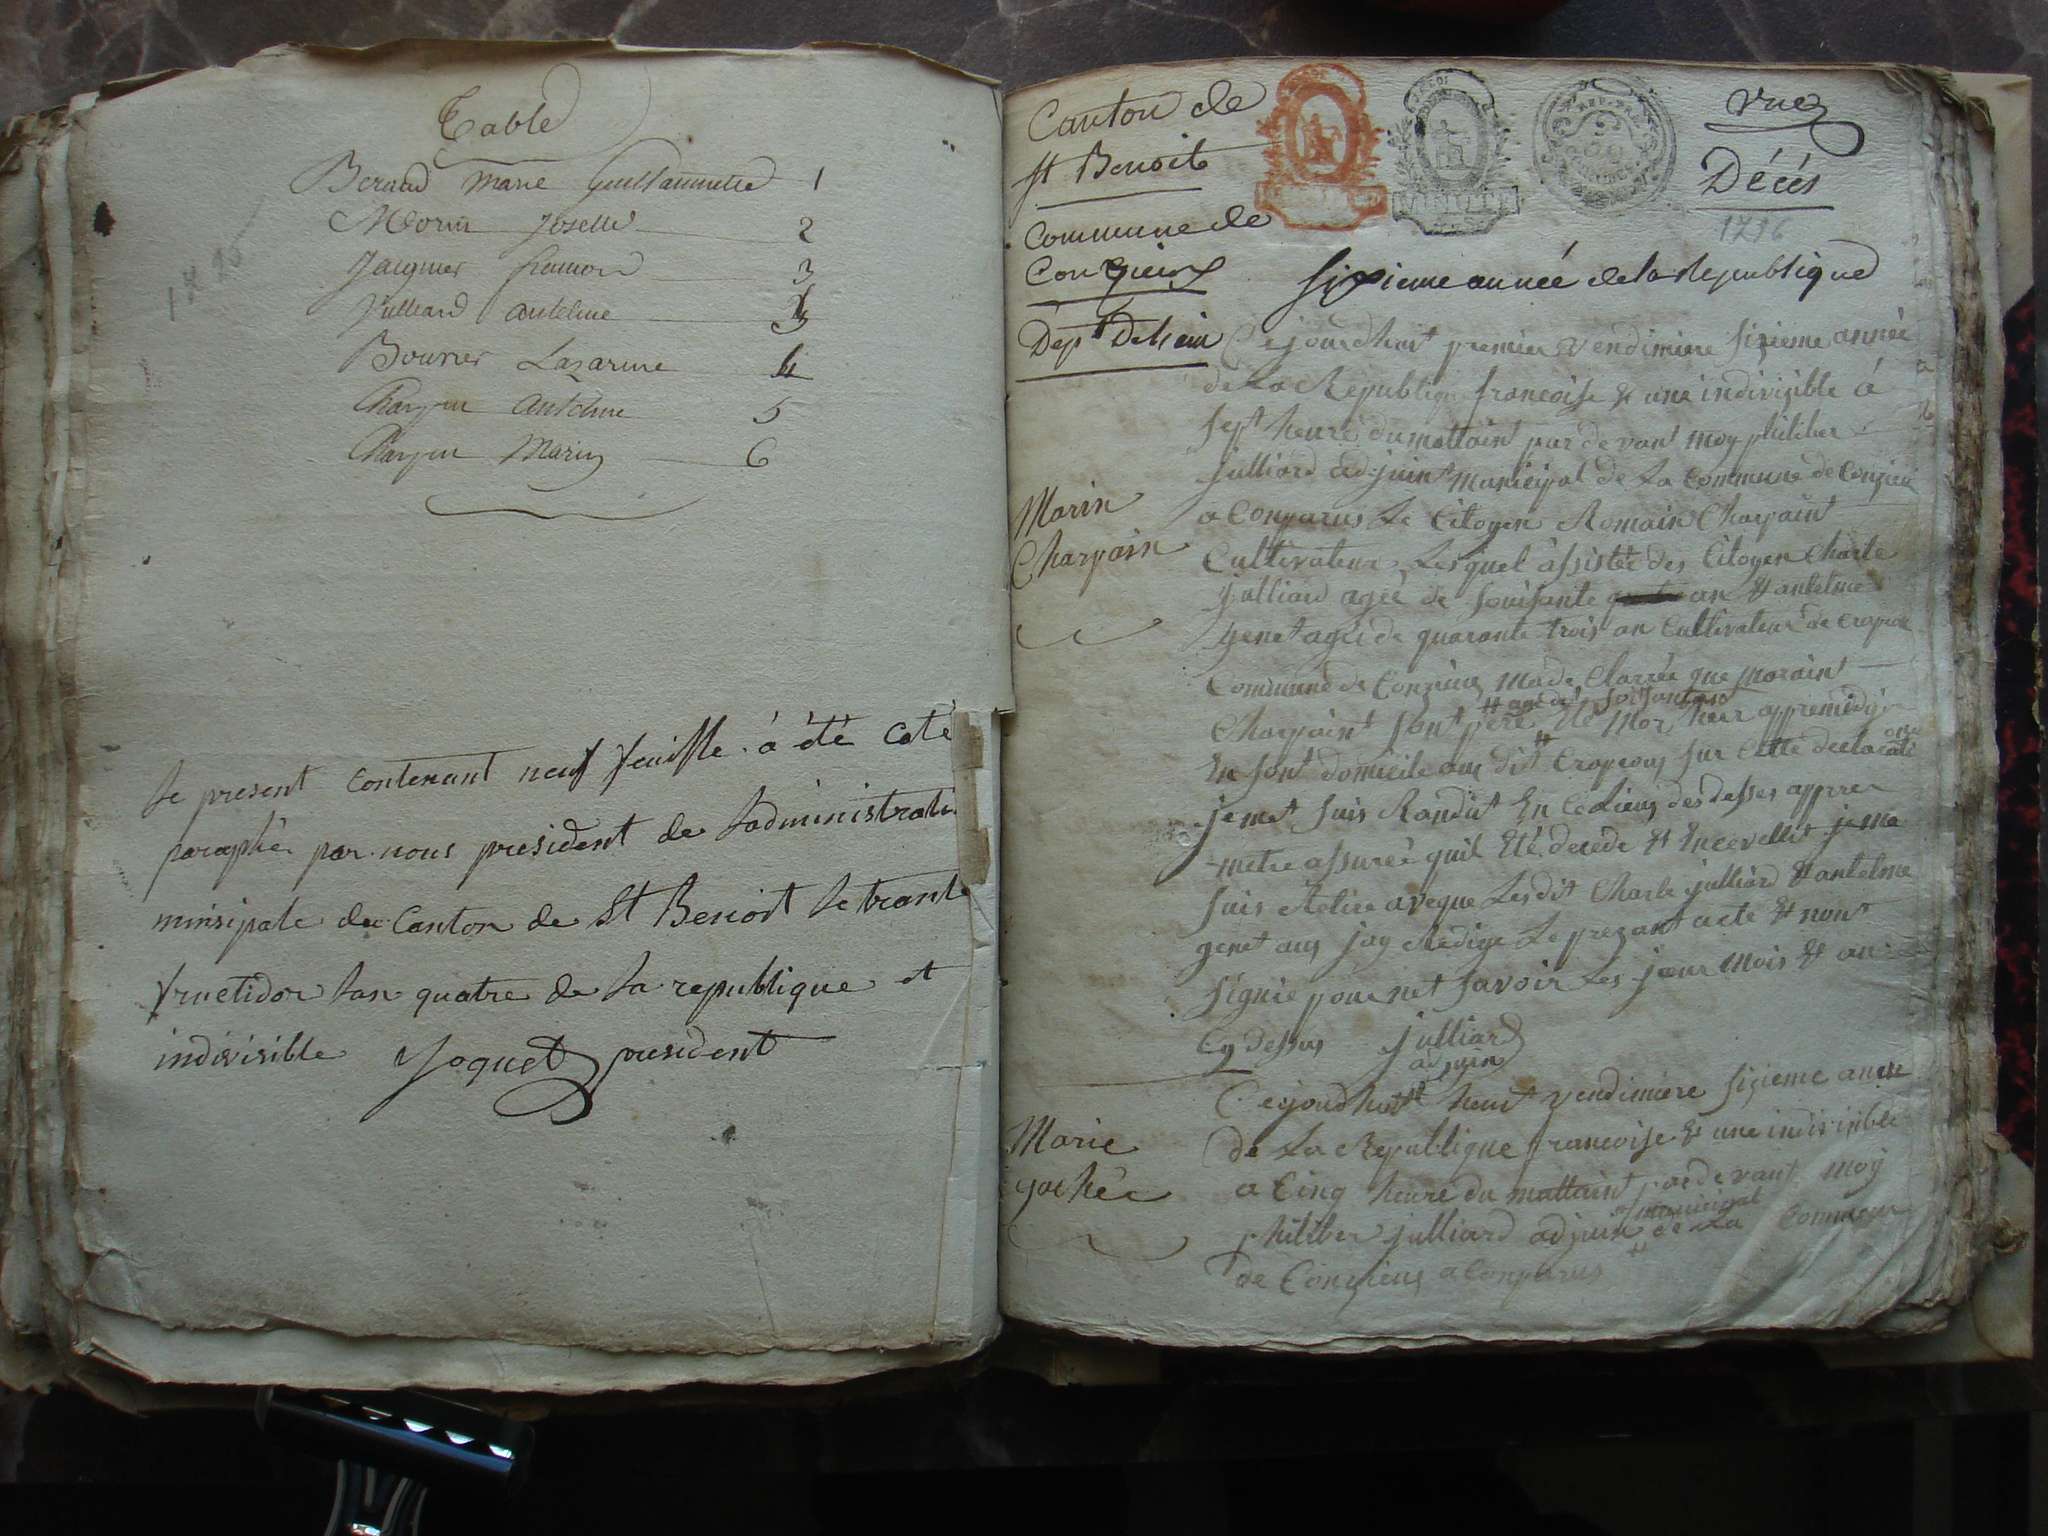 Table
Beraud Marie Guillaumette 1
Morin Joselle 2
Jacquier 3
Julliard anthelme 3
Bouvier Lazarine 4
Charpin Anthelme 5
Charpin Marin 6
Le present contenant neuf feuille a été coté
paraphé par nous president de Ladministrati
minsipale du Canton de St Benoit le trante
fructidor lan quatre de la republique et
indivisible Joguet president
Canton de
St Benoit
Commune de
Conzieux
Dept De Lain
vue
Décés
1796
Sixieme année de la Republique
Marin
Charpain
Cejourdhuit premier vendimiere sizieme année
de La Republique francoise & une indivisible á
sept heure du mattaint par devant moy philiber
julliard adjuint municipal de La Commune de Conzieu
a Conparus Le Citoyen Romain Charpain
Cultivateur Lesquel assistée des Citoyen Charle
julliard agée de souisante an & antelme
genet agée de quarante trois an Cultivateur de Crapeou
Commune de Conzieux ma de Clarée que marain
agé de soisantes
Charpaint sont pere Et Mor hier appremidy
En sont domicile aux dit Crapeoux sur Cette declarati
one
je met suis Randut En Ce Lieux des desses apprer
metre assureé quil Eté decede & Encevellit je me
suis Retire aveque Lesdit Charle julliard & antelme
genet aux jay Redige Le prezant acte & nont
signie pour net savoir Les jour mois & an
Cy dessus Julliard
adjuin
Marie
Cejourdhuitt heuit vendimiere sizieme anée
de La Republique francoise & une indivisible
a Cinq heure du mattaint par devant moy
municipal
philiber julliard adjuin de La Commune
de Conzieux a Conparus